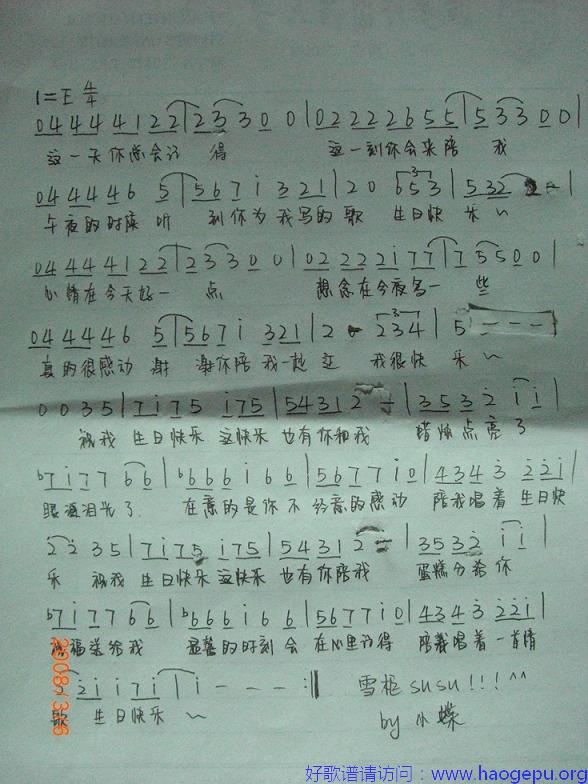 1=E 4/4
0 4 4 4 4 1 2 2 | 2 3 3 0 0 | 0 2 2 2 2 6 5 5 | 5 3 3 0 0 |
这一天你总会记 得 这一刻你会来陪 我
0 4 4 4 4 6 5 | 5 6 7 i 3 2 1 | 2 0 6 5 3 | 5 3 2 - |
午夜的时候 听 到你为我写的歌 生日快 乐~
0 4 4 4 4 1 2 2 | 2 3 3 0 0 | 0 2 2 2 2 i 7 7 | 7 5 5 0 0 |
心情在今天好一 点 想念在今夜多一 些
0 4 4 4 4 6 5 | 5 6 7 i 3 2 1 | 2 - 2 3 4 | 5 - - - |
真的很感动 谢 谢你陪我一起过 我很快 乐~
0 0 3 5 | 7 i 7 5 i 7 5 | 5 4 3 1 2 - | 3 5 3 2 i i |
祝我 生日快乐 这快乐 也有你和我 蜡烛点亮了
b7 i 7 7 6 6 | b6 6 6 i 6 6 | 5 6 7 7 i 0 | 4 3 4 3 2 2 i |
眼泪泪光了 在意的是你不 经意的感动 陪我唱着 生日快
2 2 3 5 | 7 i 7 5 i 7 5 | 5 4 3 1 2 - | 3 5 3 2 i i |
乐 祝我 生日快乐 这快乐 也有你陪我 蛋糕分给你
b7 i 7 7 6 6 | b6 6 6 i 6 6 | 5 6 7 7 i 0 | 4 3 4 3 2 2 i |
福送给我 温馨的时刻会 在心里记得 陪我唱着一首情
2 i i 7 i | i - - - :||
歌 生日快乐 ~
雪栀 susu!!! ^^
by 小蝶
2008/3/6
好歌谱请访问：www.haogepu.org